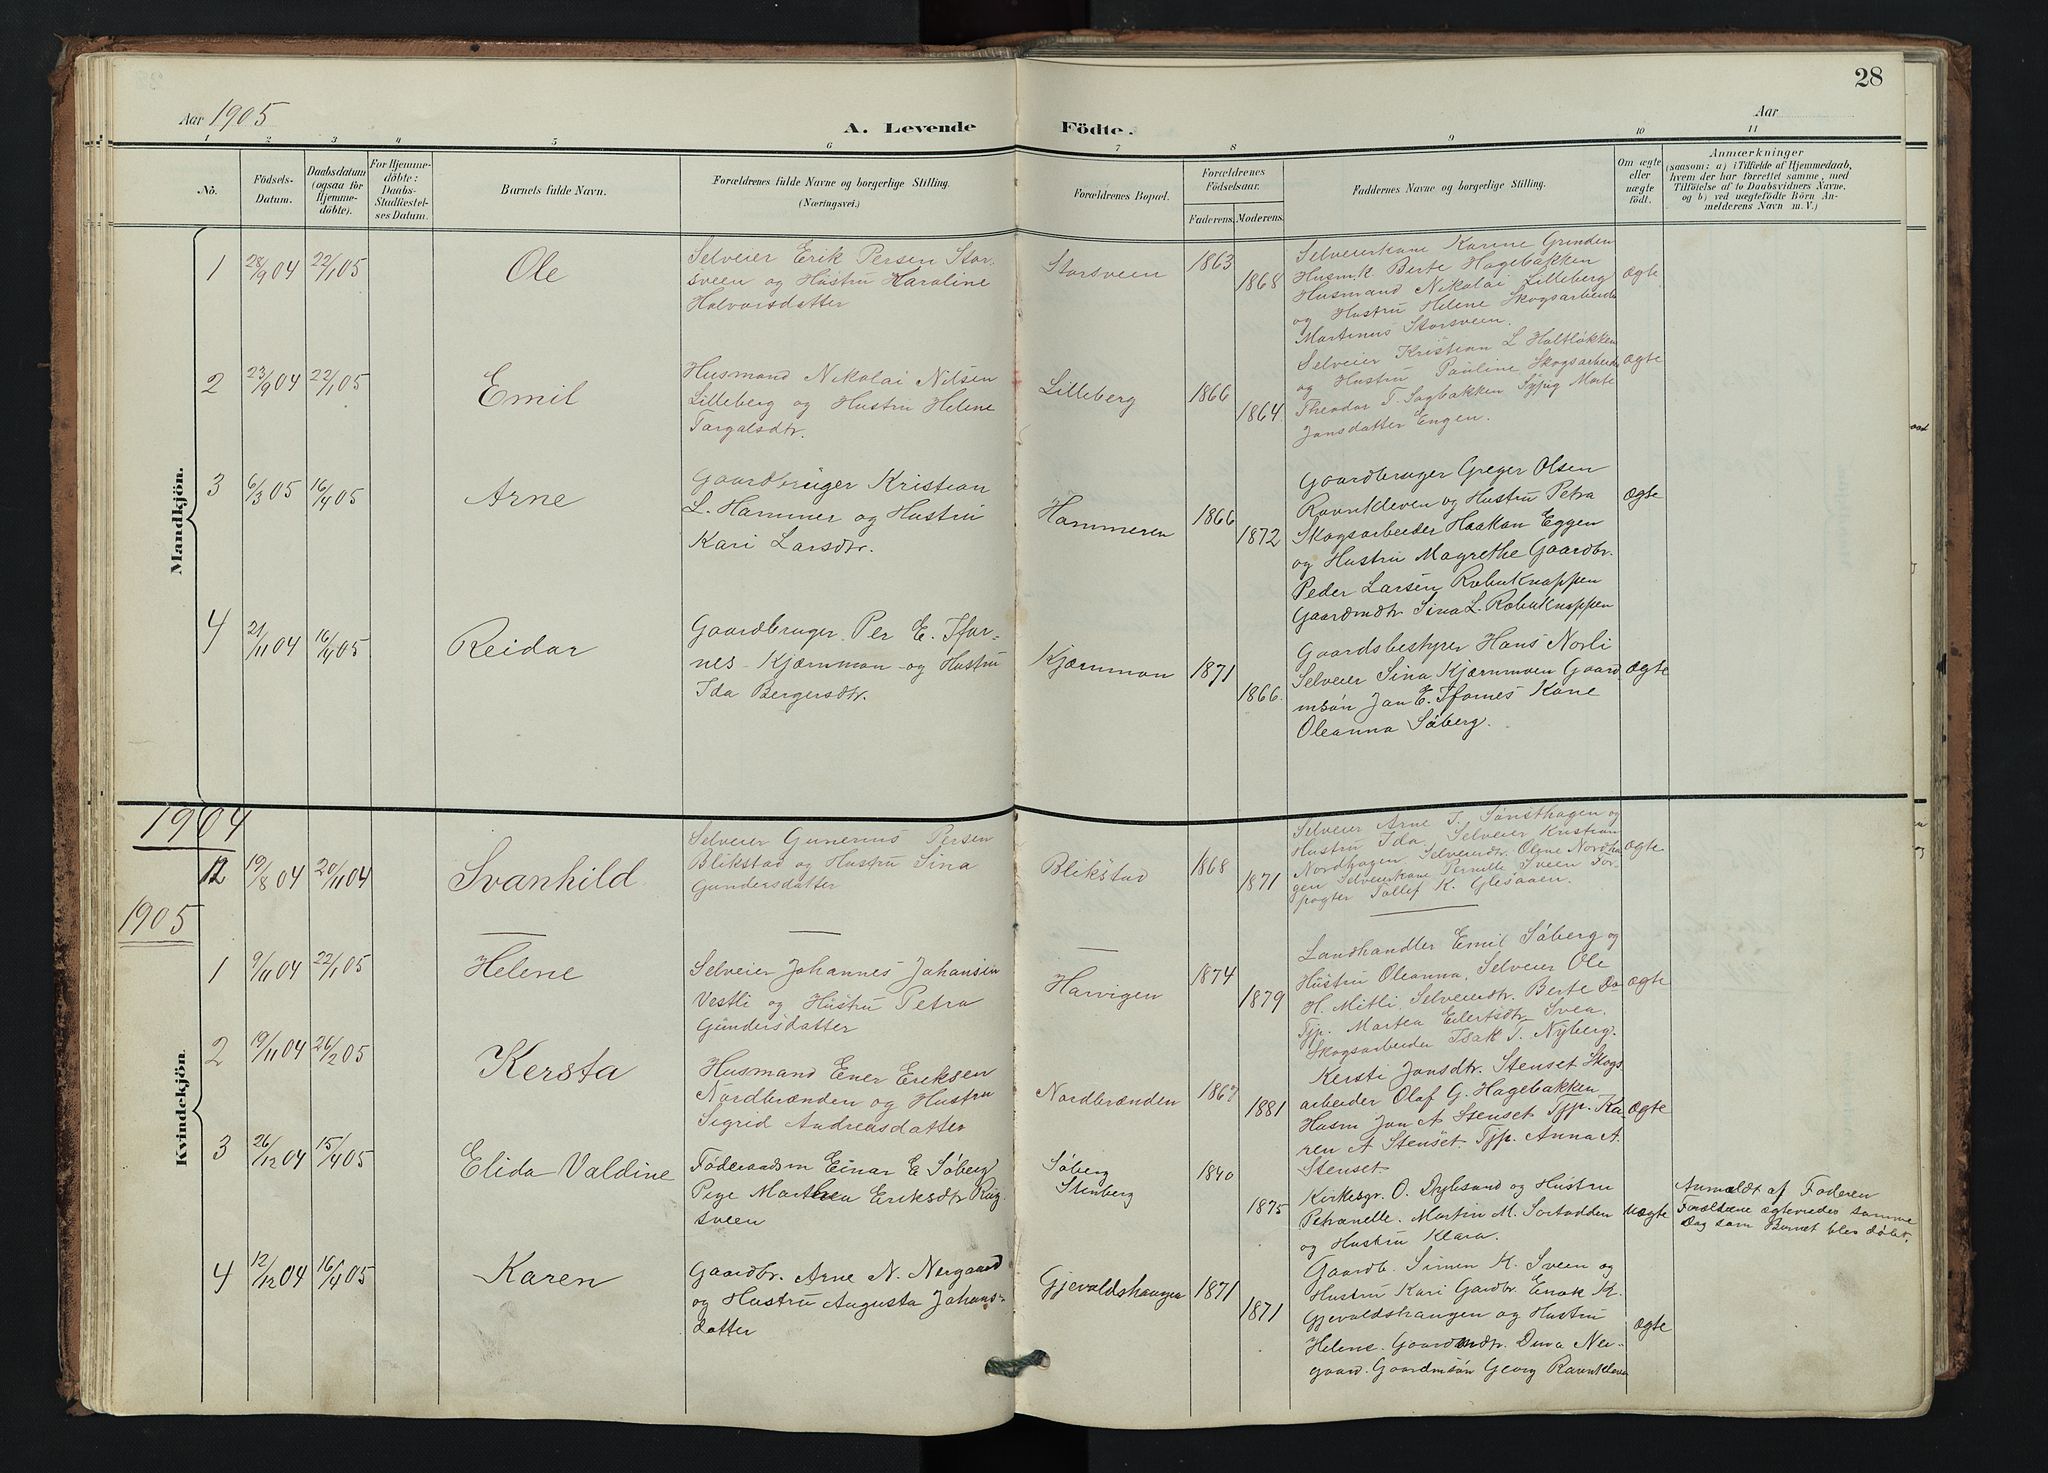 28
Aar 1905
A. Levende Födte.
Aar
1 2 3 4 5 6 7 8 9 10 11
Nö.
Födsels-Datum.
Daabsdatum (ogsaa för Hjemme-döbte).
For Hjemme-döbte: Daabs-Stadfæstel-ses Datum.
Barnets fulde Navn.
Forældrenes fulde Navne og borgerlige Stilling. (Næringsvei.)
Forældrenes Bopæl.
Forældrenes Födselsaar.
Faderens. Moderens.
Faddernes Navne og borgerlige Stilling.
Om ægte eller uægte födt.
Anmærkninger
(saasom: a) i Tilfælde af Hjemmedaab, hvem der har forrettet samme, med Tilföielse af to Daabsvidners Navne, og b) ved uægtefödte Börn An-melderens Navn m. V.)
Mandkjön.
1 28/9 04 22/1 05 Ole
Selveier Erik Persen Stor-
sveen og Hustru Karoline
Halvorsdatter
Storsveen 1863 1868
Selveierkone Karine Grinden
Husm.k. Berte Hagebakken
Husmand Nikolai Lilleberg
og Hustru Helene Skogsarbeider
Martinus Storsveen.
Ægte
2 23/9 04 22/1 05 Emil
Husmand Nikolai Nilsen
Lilleberg og Hustru Helene
Torgalsdtr.
Lilleberg 1866 1864
Selveier Kristian L Holtløkken
og Hustru Pauline Skogsarbeider
Theodor T. Sagbakken Sypig Marte
Jonsdatter Engen.
Ægte
3 6/3 05 16/4 05 Arne
Gaardbruger Kristian
L. Hammer og Hustru
Kari Larsdtr.
Hammeren 1866 1872
Gaardbruger Greger Olsen
Ravnkleven og Hustru Petra
Skogsarbeider Haakan Eggen
og Hustru Magrethe Gaardbr.
Peder Larsen
Gaardmdtr Sina L.
Ægte
4 21/11 04 16/4 05 Reidar
Gaardbruger Per E.
nes Kjærnmon og Hustru
Ida Bergersdtr.
Kjærnmon 1871 1866.
Gaardsbestyrer Hans Norli
Selveier Sina Kjærnmoen Gaard
msön Jon E. Kone
Oleanna Søberg.
Ægte
1904
Kvindekjön.
12 19/8 04 20/11 04 Svanhild
Selveier Gunerius Persen
Blikstad og Hustru Sina
Gundersdatter
Blikstad 1868 1871
Selveier Arne T. Sønsthagen og
Hustru Ida, Selveier Kristian
Nordhagen, Selveierdtr. Oline Nordha
gen Selveierkone Pernille Sveen For
pagter Tollef K. Glesaaen.
Ægte
1905
1 9/11 04 22/1 05 Helene
Selveier Johannes Johansen
Vestli og Hustru Petra
Gundersdatter
Harvigen 1874 1879
Landhandler Emil Søberg og
Hustru Oleanna, Selveier Ole
H. Mitli Selveierdtr. Berte Do
Tjp. Martea Eilertsdtr. Svea.
Skogsarbeider Isak T. Nyberg.
Ægte
2 19/11 04 26/2 05 Kersta
Husmand Ener Eriksen
Nordbrænden og Hustru
Sigrid Andreasdatter
Nordbrænden 1867 1881
Kersti Jonsdtr. Stenset Skogs
arbeider Olaf G. Hagebakken
Husm Jon A Stenset Tjp. Ka-
ren A Stenset. Tjp. Anna A.
Stenset
Ægte
3 26/12 04 15/4 05 Elida Valdine
Føderaadsm Einar E Søberg
Pige Marthea Eriksdtr Rug-
sveen
Søberg
Stenberg
1840 1875
Kirkesgr. O. Dybsand og Hustru
Petranelle. Martin M. Sortodden
og Hustru Klara.
Uægte
Anmeldt af Faderen
Forældrene ægteviedes samme
Dag som Barnet blev døbt.
4 12/12 04 16/4 05 Karen
Gaardbr. Arne N. Nergaard
og Hustru Augusta Johans-
datter
Gjevaldshaugen 1871 1871
Gaardb. Simen K. Sveen og
Hustru Kari Gardbr. Enok K.
Gjevaldshaugen og Hustru
Helene. Gaardmdtr. Dina Ner-
gaard. Gaardmsön Georg Ravnkleven
Ægte